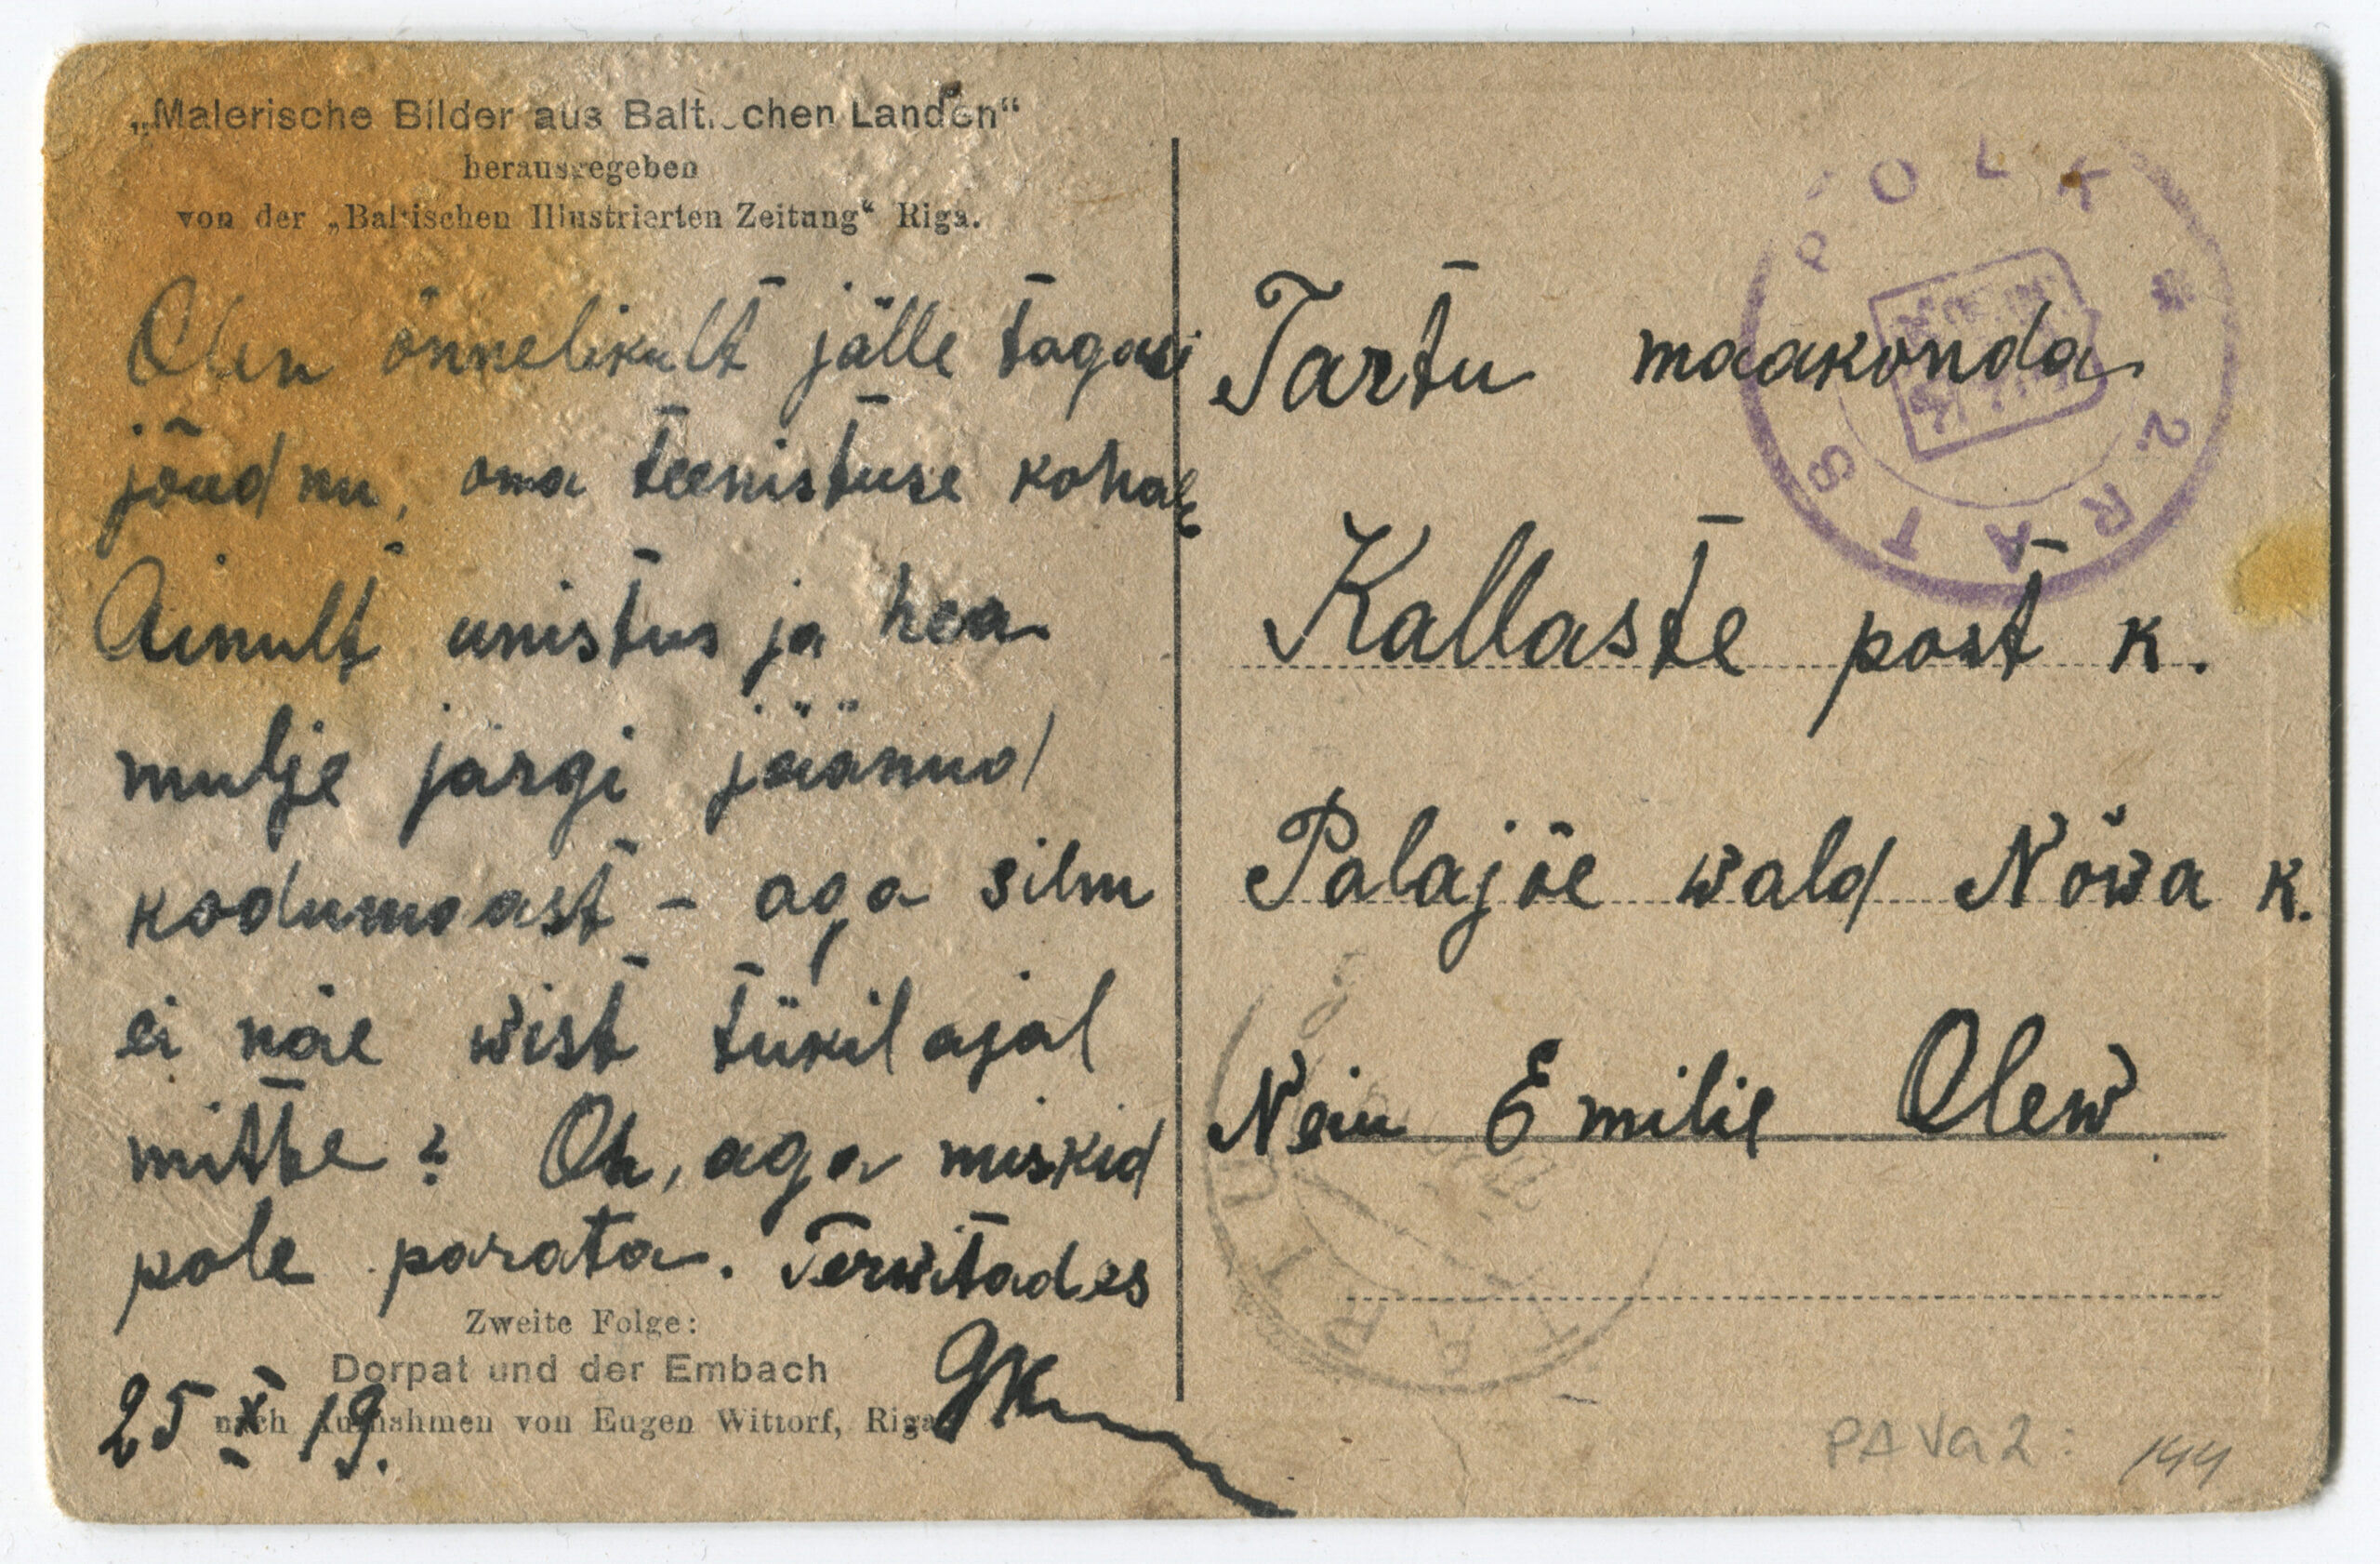 „Malerische Bilder aus Balt. chen Landen“
herausgegeben
von der „Baltischen Illustrierten Zeitung“ Riga.
Olen õnnelikult jälle tagasi
jõudnu, oma teenistuse kohale
Ainult unistus ja hea
mulje järgi jäänud
kodumaast – aga silm
ei näe wist tükil ajal
mitte? Oh, aga miskid
pole parata. Terwitades
Zweite Folge:
Dorpat und der Embach
nach Aufnahmen von Eugen Wittorf, Riga
25 X 19.
Tartu maakonda
Kallaste post k.
Palajõe wald Nõwa k.
Neiu Emilie Olew
POLK * 2 RATS
TARTU
PA Va 2: 144